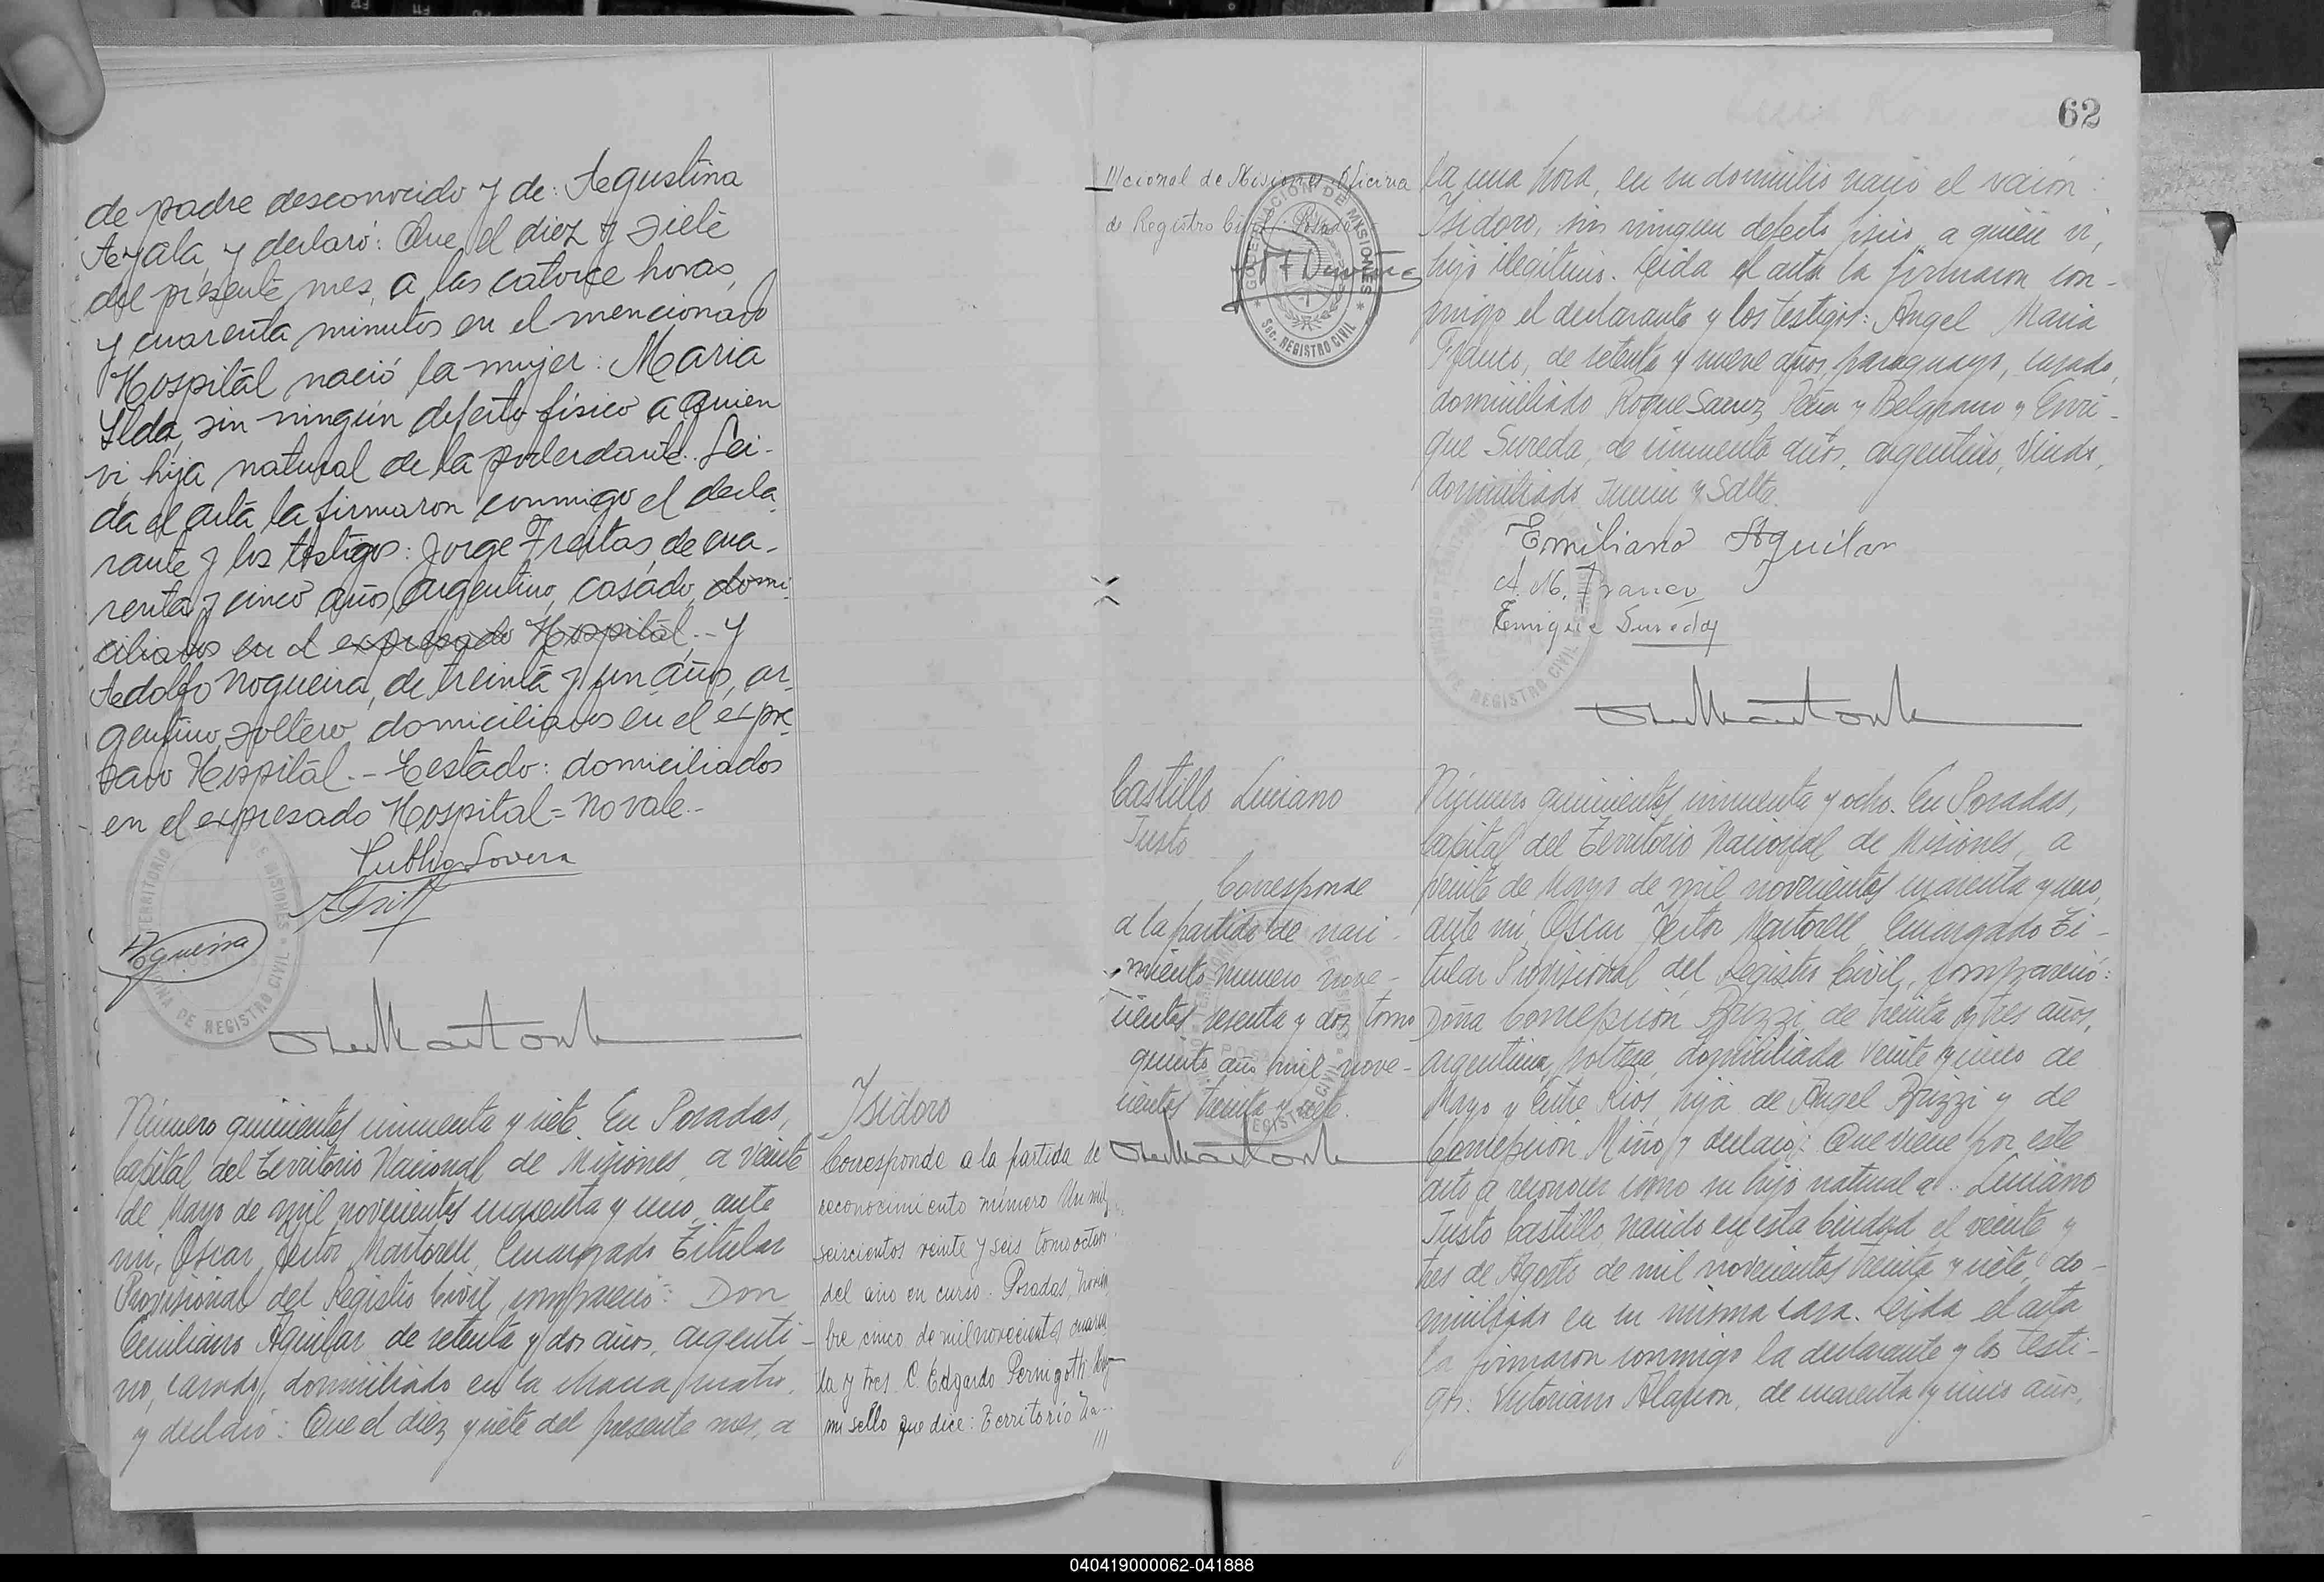 de padre desconocido y de: Agustina
Ayala, y declaró: Que el diez y siete
del presente mes, a las catorce horas,
y cuarenta minutos en el mencionado
Hospital nació la mujer: Maria
Ilda, sin ningún defecto físico a quien
vi, hija natural de la poderdante. Lei-
da el acta la firmaron conmigo el decla-
rante y los testigos: Jorge Freitas, de cua-
renta y cinco años, argentino, casado, domi-
ciliados en el expresado Hospital.- y
Adolfo Nogueira, de treinta y un años, ar-
gentino, soltero, domiciliados en el expre-
sado Hospital.- Testado: domiciliados
en el expresado Hospital = no vale.-
Publio Lovera
Nogueira
TERRITORIO DE MISIONES
OFICINA DE REGISTRO CIVIL
Número quinientos cincuenta y siete. En Posadas,
Capital del Territorio Nacional de Misiones, a veinte
de Mayo de mil novecientos cuarenta y uno, ante
mi, Oscar Hector Martorell, Encargado Titular
Provisional del Registro Civil, compareció: Don
Emiliano Aguilar de setenta y dos años, argenti-
no, casado, domiciliado en la chacra cuatro,
y declaró: Que el diez y siete del presente mes, a
Isidoro
Corresponde a la partida de
reconocimiento número Un mil
seiscientos veinte y seis tomo octavo
del año en curso. Posadas, Noviem
bre cinco de mil novecientos cuaren
ta y tres. C. Edgardo Pernigotti. Hay
un sello que dice: Territorio Na-
///
62
///cional de Misiones. Oficina
de Registro Civil. Posadas
GOBERNACIÓN DE MISIONES
Sec. REGISTRO CIVIL
la una hora, en su domicilio nació el varón:
Isidoro, sin ningun defecto fisico, a quien vi,
hijo ilegitimo. Leida el acta la firmaron con-
migo el declarante y los testigos: Angel Maria
Franco, de setenta y nueve años, paraguayo, casado,
domiciliado Roque Saenz Peña y Belgrano y Enri-
que Sureda, de cincuenta años, argentino, viudo,
domiciliado Junin y Salta.
Emiliano Aguilar
A. M. Franco
Enrique Sureda
DE REGISTRO CIVIL
Castillo Luciano
Justo
Corresponde
a la partida de naci-
miento numero nove-
cientos sesenta y dos tomo
quinto año mil nove-
cientos treinta y siete.
Número quinientos cincuenta y ocho. En Posadas,
Capital del Territorio Nacional de Misiones, a
veinte de Mayo de mil novecientos cuarenta y uno,
ante mi, Oscar Hector Martorell, Encargado Ti-
tular Provisional del Registro Civil, compareció:
Doña Concepción Brizzi de treinta y tres años,
argentina, soltera, domiciliada Veinte y cinco de
Mayo y Entre Rios, hija de Angel Brizzi y de
Concepción Miño y declaró: Que viene por este
acto a reconocer como su hijo natural a: Luciano
Justo Castillo, nacido en esta Ciudad el veinte y
tres de Agosto de mil novecientos treinta y siete, do-
miciliado en su misma casa. Leida el acta
la firmaron conmigo la declarante y los testi-
gos: Victoriano Alarcon, de cuarenta y cinco años,
040419000062-041888